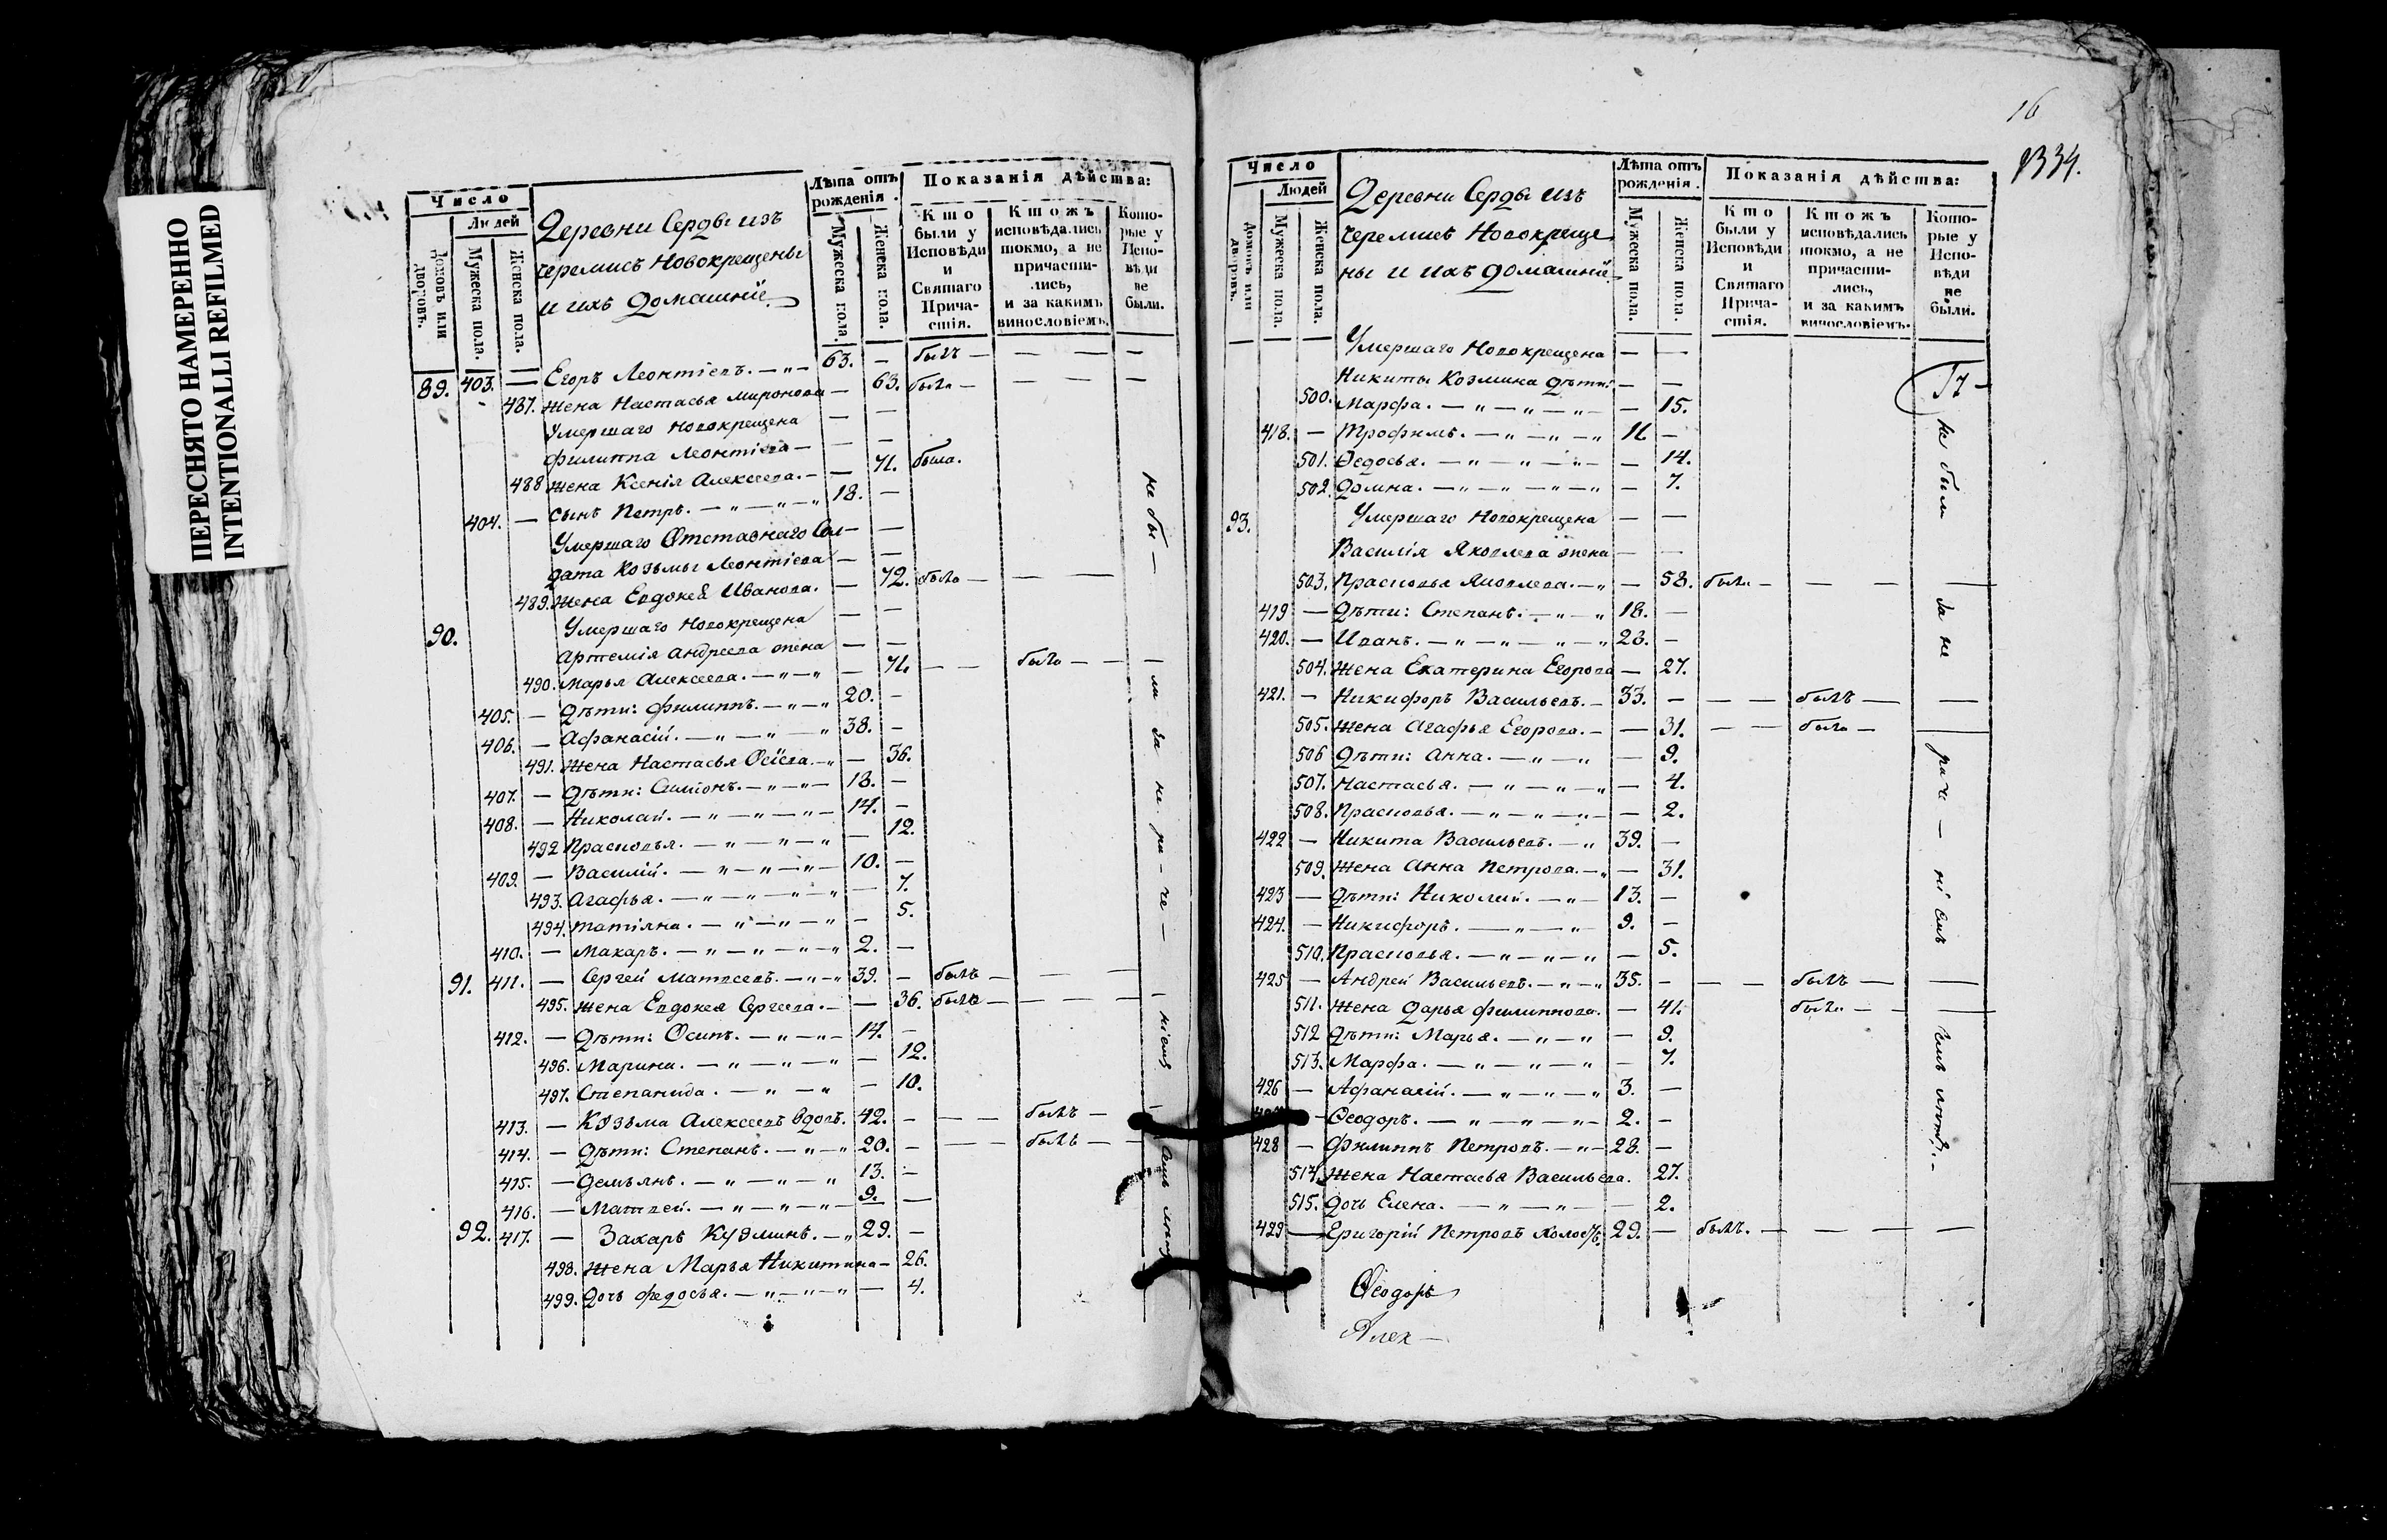 ПЕРЕСНЯТО НАМЕРЕННО
INTENTIONALLI REFILMED
Число
Людей
Домовъ или дворовъ.
Мужеска пола.
Женска пола.
Деревни Серды изъ
черемисъ Новокрещены
и ихъ домашнiе
Лѣта отъ рожденiя.
Мужеска пола.
Женска пола.
Показанiя дѣйства:
Кто были у Исповѣди и Святаго Причастiя.
Ктожъ исповѣдались токмо, а не причастились, и за какимъ винословiемъ.
Которые у Исповѣди не были.
89. 403. — Егоръ Леонтiевъ. — „ — 63. — былъ — — — —
487. жена Настасья Миронова — 63. была — — — —
Умершаго Новокрещена — —
Филиппа Леонтiева — — —
488 жена Ксенiя Алексеева. — — 71. была.
404. — сынъ Петръ. — „ — „ — „ 18. —
Умершаго Отставнаго Сол — —
дата Козьмы Леонтiева — —
489. жена Евдокея Иванова. — 72. была — — —
90. Умершаго Новокрещена — —
Артемiя Андреева жена — —
490. Марья Алексеева. — „ — „ — 71. — — была — — —
405. — Дѣти: Филиппъ. — „ — „ 20. —
406. — Афанасiй. — „ — „ — „ 38. —
491. жена Настасья — „ — 36.
407. — Дѣти: Симiонъ. — „ — „ — 18. —
408. — Николай. — „ — „ — „ — 14. —
492 Прасковья. — „ — „ — „ — 12.
409. — Василiй. — „ — „ — „ — 10. —
493. Агафья. — „ — „ — „ — „ — 7.
494. Татiяна. — „ — „ — „ — 5.
410. — Макаръ. — „ — „ — „ — „ 2. —
91. 411. — Сергей Матвеевъ. — „ — „ 39. — былъ — — —
495. жена Евдокея Сергеева. — — 36. была — — — — —
412. — Дѣти: Осипъ. — „ — „ — 14. —
496. Марина. — „ — „ — „ — 12.
497. Степанида. — „ — „ — 10.
413. — Козьма Алексеевъ вдовъ. 42. — — — былъ —
414. — Дѣти: Степанъ. — „ — „ 20. — — — былъ — —
415. — Демьянъ. — „ — „ — „ 13. —
416. — Матвей. — „ — „ — „ — 9. —
92. 417. — Захаръ Кузминъ. — „ 29. —
498. жена Марья Никитина — 26.
499. Дочь Федосья. — „ — „ — „ — 4.
не бы — ли за не ра — че — нiемъ
16
1334.
Число
Людей
Домовъ или дворовъ.
Мужеска пола.
Женска пола.
Деревни Серды изъ
черемисъ Новокреще
ны и ихъ домашнiе
Лѣта отъ рожденiя.
Мужеска пола.
Женска пола.
Показанiя дѣйства:
Кто были у Исповѣди и Святаго Причастiя.
Ктожъ исповѣдались токмо, а не причастились, и за какимъ винословiемъ.
Которые у Исповѣди не были.
Умершаго Новокрещена — —
Никиты Козмина дѣти: — —
500. Марфа. — „ — „ — „ — — 15.
418. — Трофимъ. — „ — „ — „ 11 —
501. Ѳедосья. — „ — „ — „ — — 14.
502. Домна. — „ — „ — „ — „ — 7.
93. Умершаго Новокрещена — —
Василiя Яковлева жена — —
503. Прасковья Яковлева. — „ — 58. была — — — —
419 — Дѣти: Степанъ. — „ — „ 18. —
420. — Иванъ. — „ — „ — „ — „ 23. —
504. жена Екатерина Егорова — 27.
421. — Никифоръ Васильевъ. — 33. — — — былъ — —
505. жена Агафья Егорова. — — 31. — — была — —
506 Дѣти: Анна. — „ — „ — 9.
507. Настасья. — „ — „ — „ — 4.
508. Прасковья. — „ — „ — „ — — 2.
422 — Никита Васильевъ. — „ 39. —
509. жена Анна Петрова. — „ — 31.
423 — Дѣти: Николай. — „ — 13. —
424. — Никифоръ. — „ — „ — 9. —
510. Прасковья. — „ — „ — „ — 5.
425 — Андрей Васильевъ. — „ — „ 35. — — — былъ — —
511. жена Дарья Филиппова. — 41. была — — —
512 Дѣти: Марья. — „ — „ — 9.
513. Марфа. — „ — „ — „ — 7.
426 — Афанасiй. — „ — „ — „ 3. —
— Ѳеодоръ. — „ — „ — „ — 2. —
428 — Филиппъ Петровъ. — „ — 28. —
514. жена Настасья Васильева. 27.
515. Дочь Елена. — „ — „ — — 2.
429 — Григорiй Петровъ холостъ. 29. — былъ. — — — —
не были за не раче — нiемъ
Ѳеодоръ
Алек —